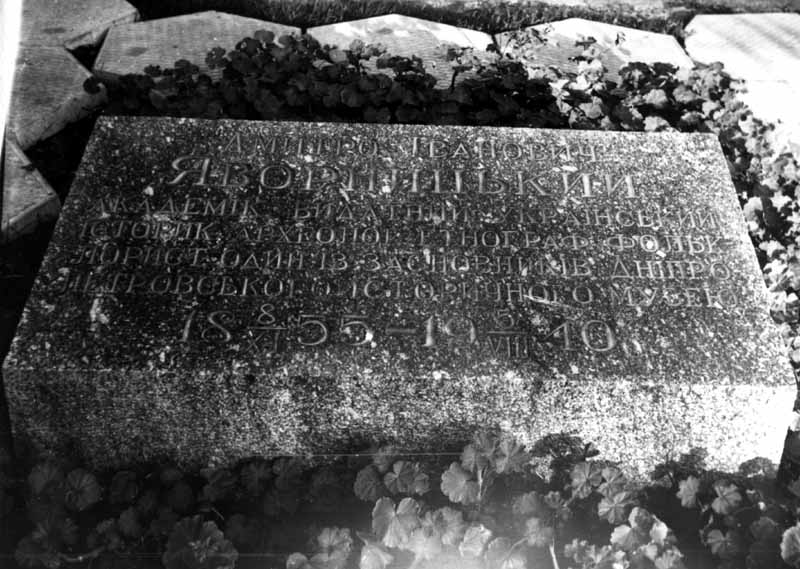 ДМИТРО ІВАНОВИЧ
ЯВОРНИЦЬКИЙ
АКАДЕМІК ВИДАТНИЙ УКРАЇНСЬКИЙ
ІСТОРИК АРХЕОЛОГ ЕТНОГРАФ ФОЛЬК-
ЛОРИСТ ОДИН ІЗ ЗАСНОВНИКІВ ДНІПРО-
ПЕТРОВСЬКОГО ІСТОРИЧНОГО МУЗЕЮ
18 8/XI 55 – 19 5/VIII 40